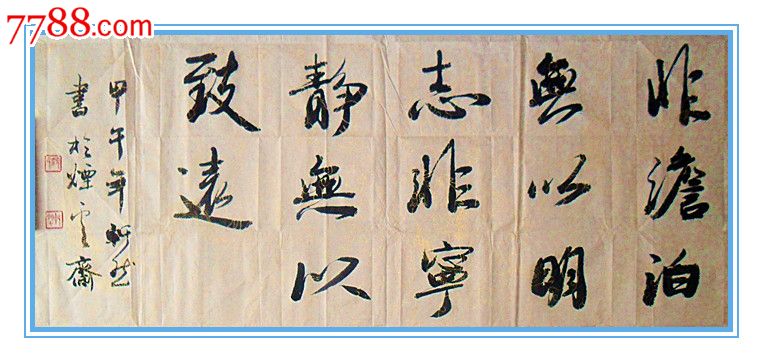 7788.com
非澹泊
無以明
志非寧
靜無以
致遠
甲午年
書於煙雲齋